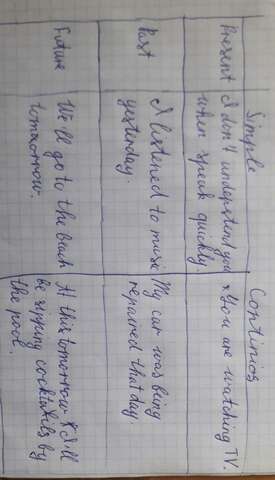 Simple
Continios
Present
I don't understand you
when speak quickly.
You are watching TV.
Past
I listened to music
yesterday.
My car was being
repaired that day.
Future
We'll go to the beach
tomorrow.
At this tomorrow I'll
be sipping cocktails by
the pool.